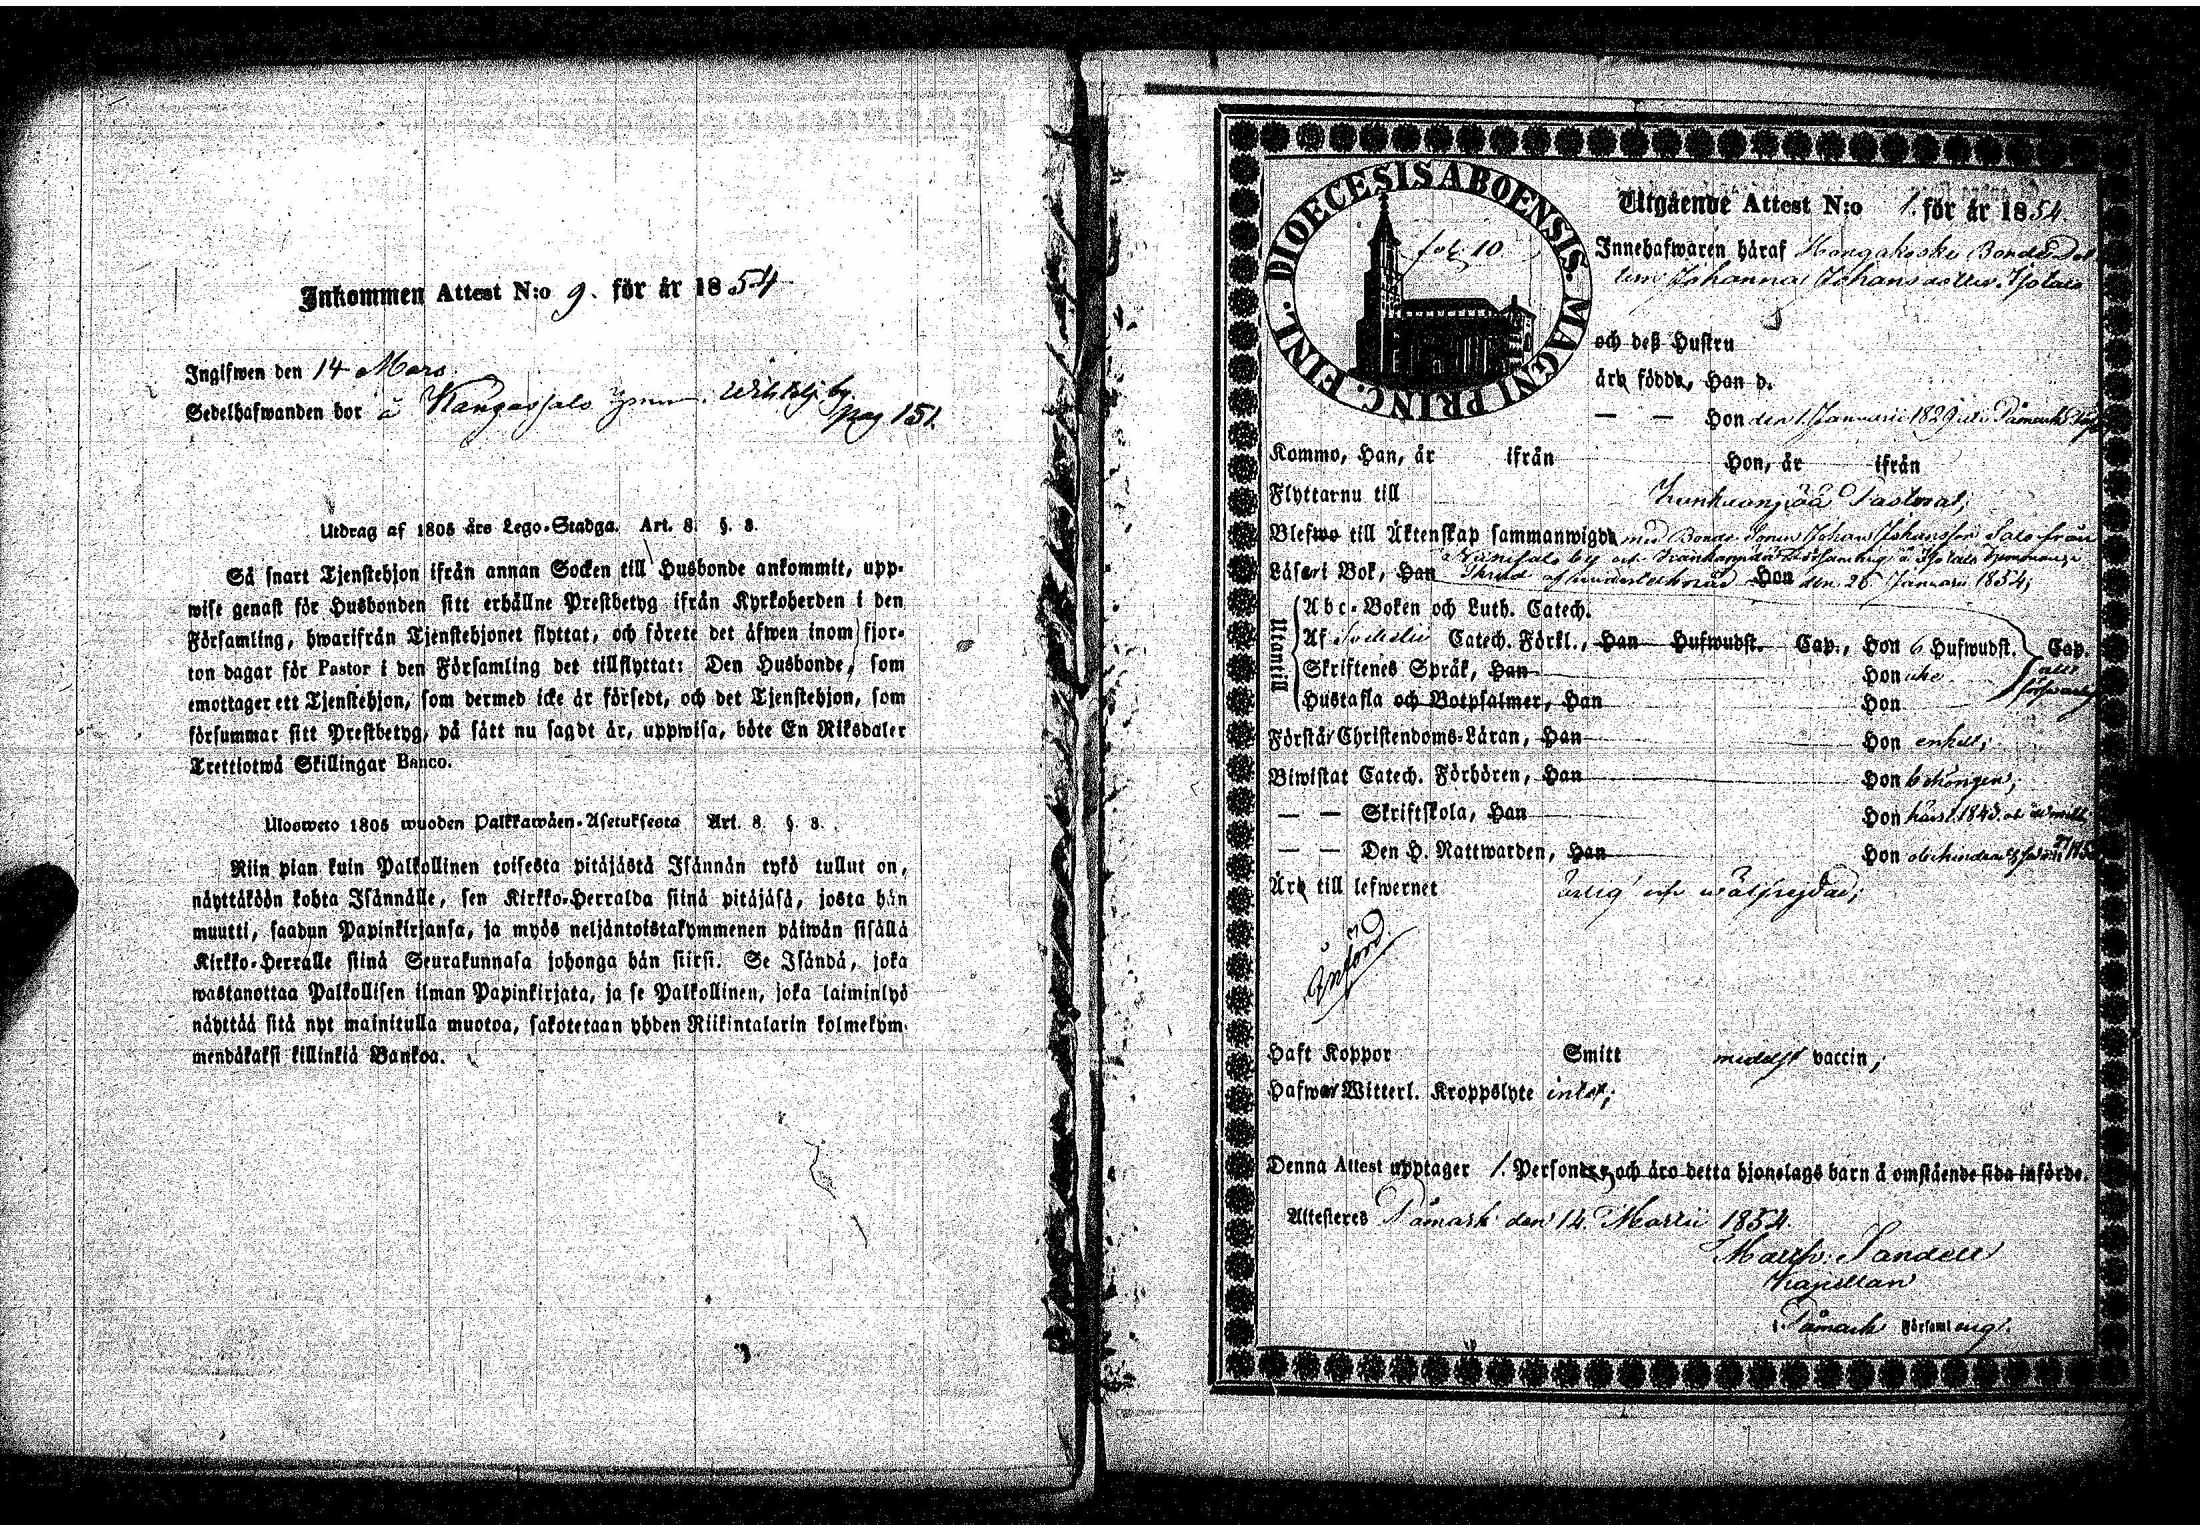 Inkommen Attest N:o 9. för år 1854
Ingifwen den 14 Mars
Sedelhafwanden bor å Kangassalo by.
pag 151.
Utdrag af 1805 års Lego-Stadga. Art. 8. §. 3.
Så snart Tjenstehjon ifrån annan Socken till Husbonde ankommit, upp-
wise genast för Husbonden sitt erhållne Prestbetyg ifrån Kyrkoherden i den
Församling, hwarifrån Tjenstehjonet flyttat, och förete det äfwen inom fjor-
ton dagar för Pastor i den Församling det tillflyttat: Den Husbonde, som
emottager ett Tjenstehjon, som dermed icke är försedt, och det Tjenstehjon, som
försummar sitt Prestbetyg, på sätt nu sagdt är, uppwisa, böte En Riksdaler
Trettiotwå Skillingar Banco.
Ulosweto 1805 wuoden Palkkawäen-Asetuksesta Art. 8. §. 3.
Niin pian kuin Palkollinen toisesta pitäjästä Isännän tykö tullut on,
näyttäköön kohta Isännälle, sen Kirkko-Herralda siinä pitäjäsä, josta hän
muutti, saadun Papinkirjansa, ja myös neljäntoistakymmenen päiwän sisällä
Kirkko-Herralle siinä Seurakunnasa johonga hän siirsi. Se Isändä, joka
wastanottaa Palkollisen ilman Papinkirjata, ja se Palkollinen, joka laiminlyö
näyttää sitä nyt mainitulla muotoa, sakotetaan yhden Riikintalarin kolmekym-
mendäkaksi killinkiä Bankoa.
DIOECESIS ABOENSIS. MAGNI PRINC. FINL.
fol 10
Utgående Attest N:o 1. för år 1854
Innehafwaren häraf Hongakoski Bonde Dot
tern Johanna Johansdotter
och deß Hustru
äro födde, Han d.
— — Hon den 1 Januarii 1829 i Påmark
Kommo, Han, år ifrån Hon, år ifrån
Flyttar nu till Kankaanpää Pastorat,
Blefwo till Äktenskap sammanwigde med Bonde Sonen Johan Johansson Salo från
by och Kankaanpää Församling å
Läser i Bok, Han Hon den 26 Januarii 1854;
Utantill
Abc-Boken och Luth. Catech.
Af Catech. Förkl., Han Hufwudst. Cap., Hon 6 Hufwudst. Cap.
Skriftenes Språk, Han Hon icke
allt
förswarligt
Hustafla och Botpsalmer, Han Hon
Förstår Christendoms-Läran, Han Hon enkelt;
Biwistat Catech. Förhören, Han Hon 6 gången;
— — Skriftskola, Han Hon
— — Den H. Nattwarden, Han Hon
Äro till lefwernet ärlig och wälfrejdad;
Införd.
Haft Koppor Smitt medelst vaccin;
Hafwer Witterl. Kroppslyte intet;
Denna Attest upptager 1. Personer, och äro detta hjonelags barn å omstående sida införde.
Attesteres Påmark den 14. Martii 1854.
Matth. Sandell
Kapellan
i Påmark Församlings.